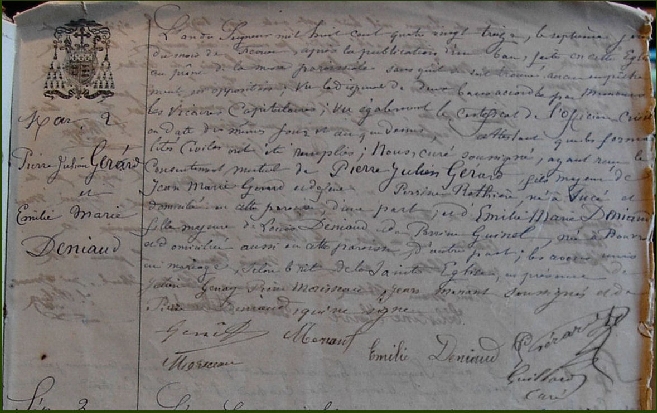 Mar. 2
Pierre Julien Gérard
et
Emilie Marie
Deniaud
L'an du Seigneur mil huit cent quatre vingt treize, le septième jour
du mois de Février, après la publication d'un ban, faite en cette Eglise
au prône de la messe paroissiale sans qu'il se soit trouvé aucun empêche
ment ni opposition; Vu la dispense de deux bans accordée par Messieurs
les Vicaires Capitulaires; Vu également le certificat de l'Officier Civil
en date des mêmes jour et an que dessus, attestant que les forma
lités Civiles ont été remplies; Nous, curé soussigné, ayant reçu le
Consentement mutuel de Pierre Julien Gérard fils majeur de
Jean Marie Gérard et de feue Perrine Rothière, né à et
domicilié en cette paroisse, d'une part; et d'Emilie Marie Deniaud
fille majeure de Louis Deniaud et de Perrine Guinel, née à
et domiciliée aussi en cette paroisse, d'autre part; les avons unis
en mariage selon le rit de la Sainte Eglise, en présence de
Julien Pierre Morisseau, Jean Menant soussignés et de
Pierre Deniaud qui ne signe
Menant
Emilie Deniaud
P Gérard
Guillard
Curé